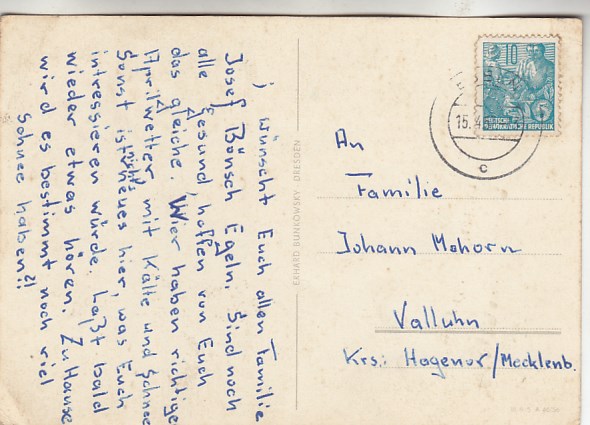 ; wünscht Euch allen Familie
Josef Bünsch Egeln. Sind noch
alle gesund, hoffen von Euch
das gleiche. Wier haben richtiges
Aprilwetter mit Kälte und Schnee
Sonst ist nichts neues hier, was Euch
intressieren würde. Laßt bald
wieder etwas hören. Zu Hause
wird es bestimmt noch viel
Schnee haben?!
ERHARD BUNKOWSKY DRESDEN
10
DEUTSCHE
DEMOKRATISCHE REPUBLIK
15.4
c
An
Familie
Johann Mohorn
Valluhn
Krs: Hagenow/Mecklenb.